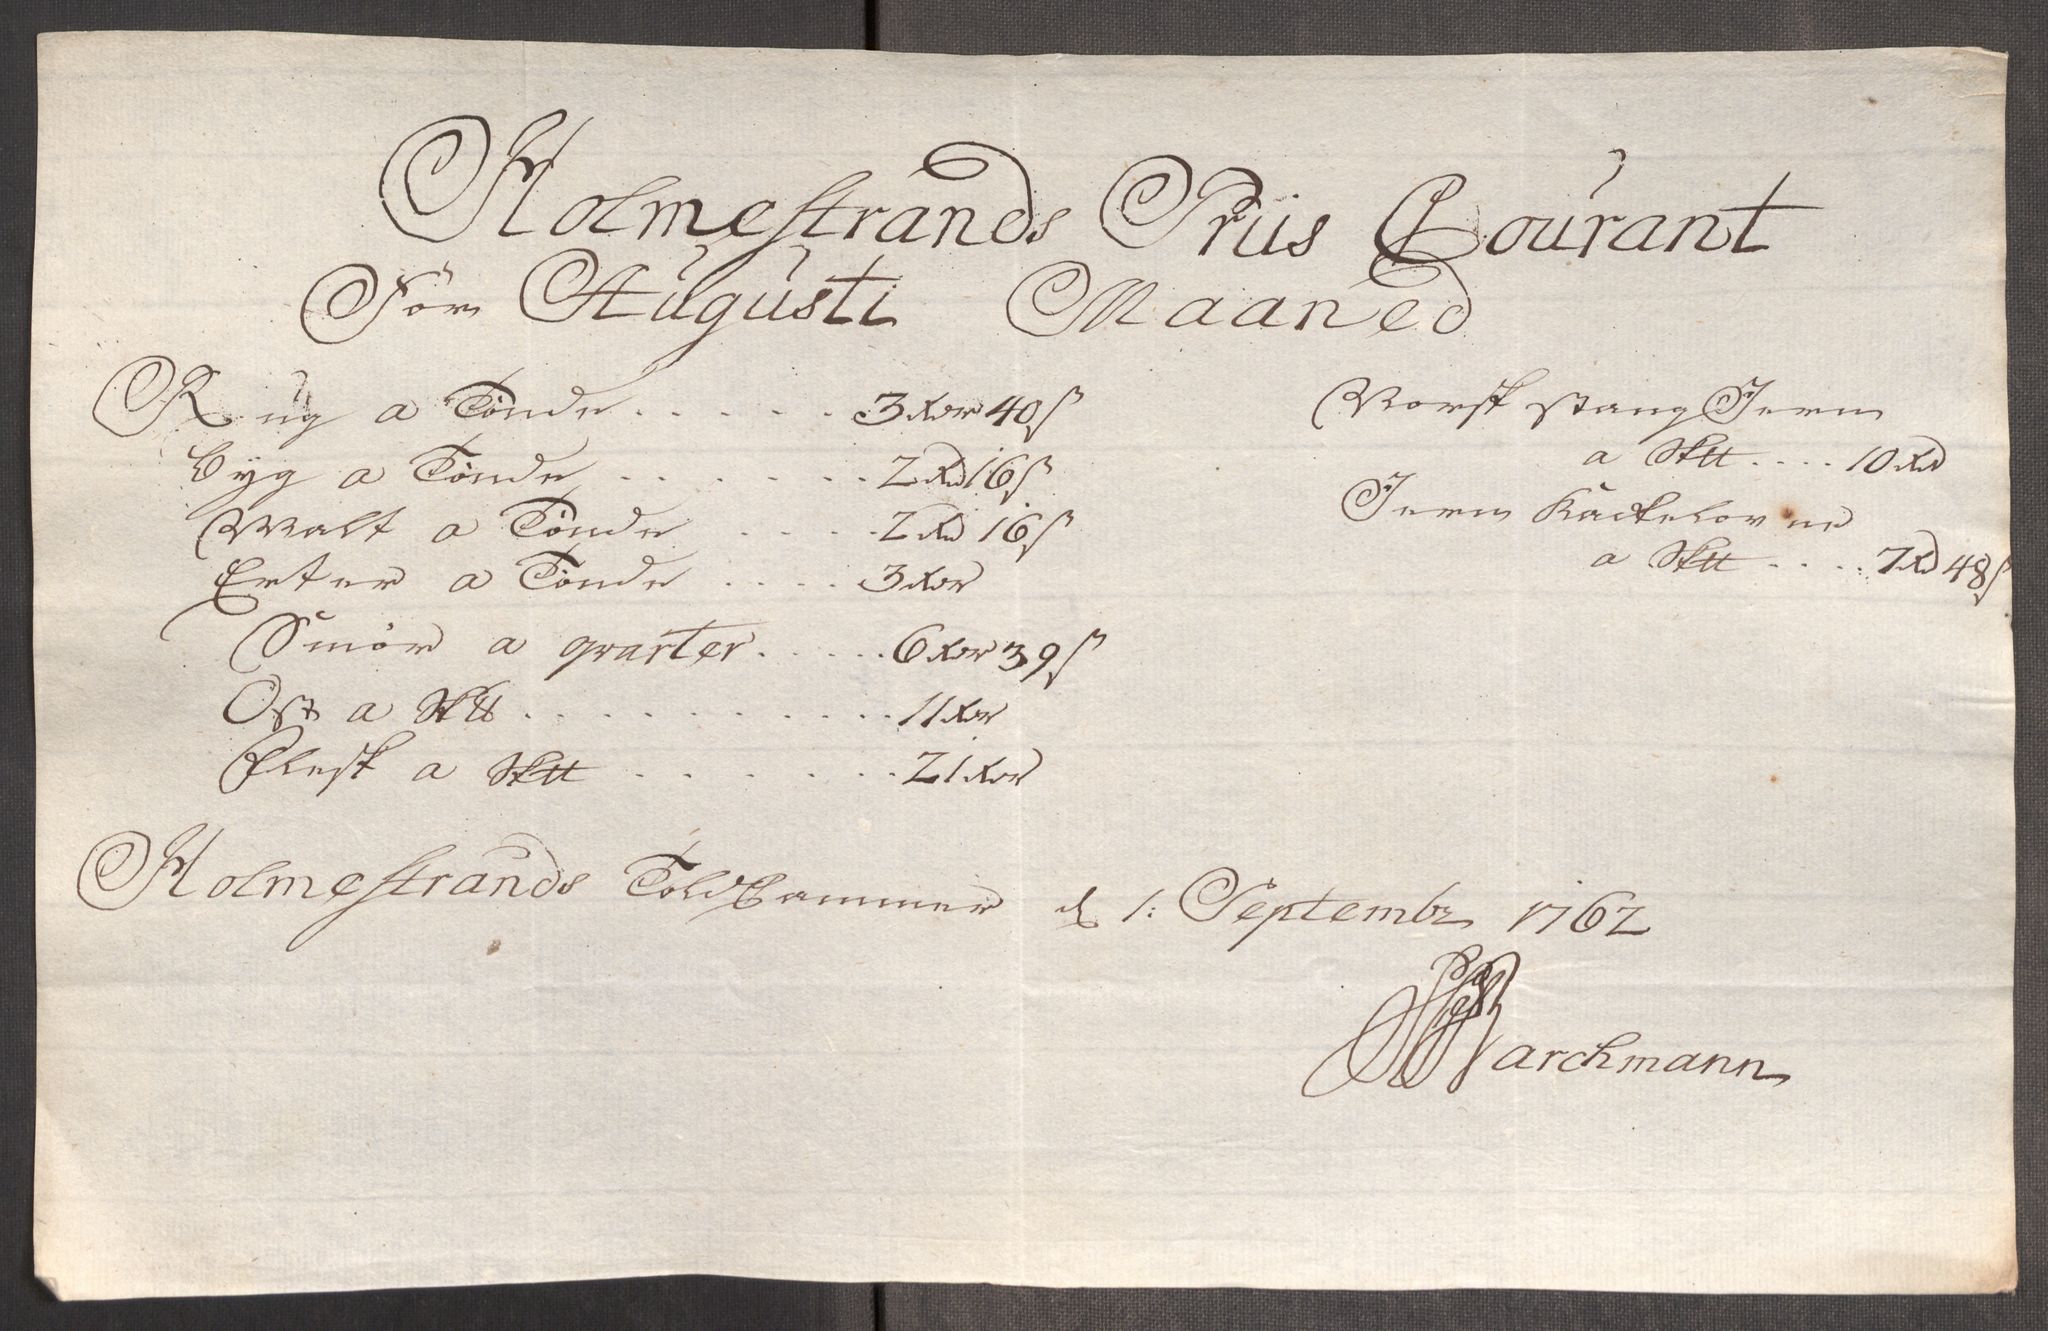 Holmestrands Priis Courant
For Augusti Maaned
Rug a Tønde . . . . . 3 Rdr 40 ß
Byg a Tønde . . . . . . 2 Rd 16 ß
Malt a Tønde . . . . 2 Rd 16 ß
Erter a Tønde . . . . 3 Rdr
Smør a qvarter . . . . . 6 Rdr 39 ß
Ost a Sk℔ . . . . . . . . . . 11 Rdr
Flesk a Sk℔ . . . . . . . 21 Rdr
Norsk stang Jern
a Sk℔ . . . . 10 Rd
Jern Kackelovne
a Sk℔ . . . . 7 Rd 48 ß
Holmestrands Told Cammer d 1: Septembr 1762
Barchmann